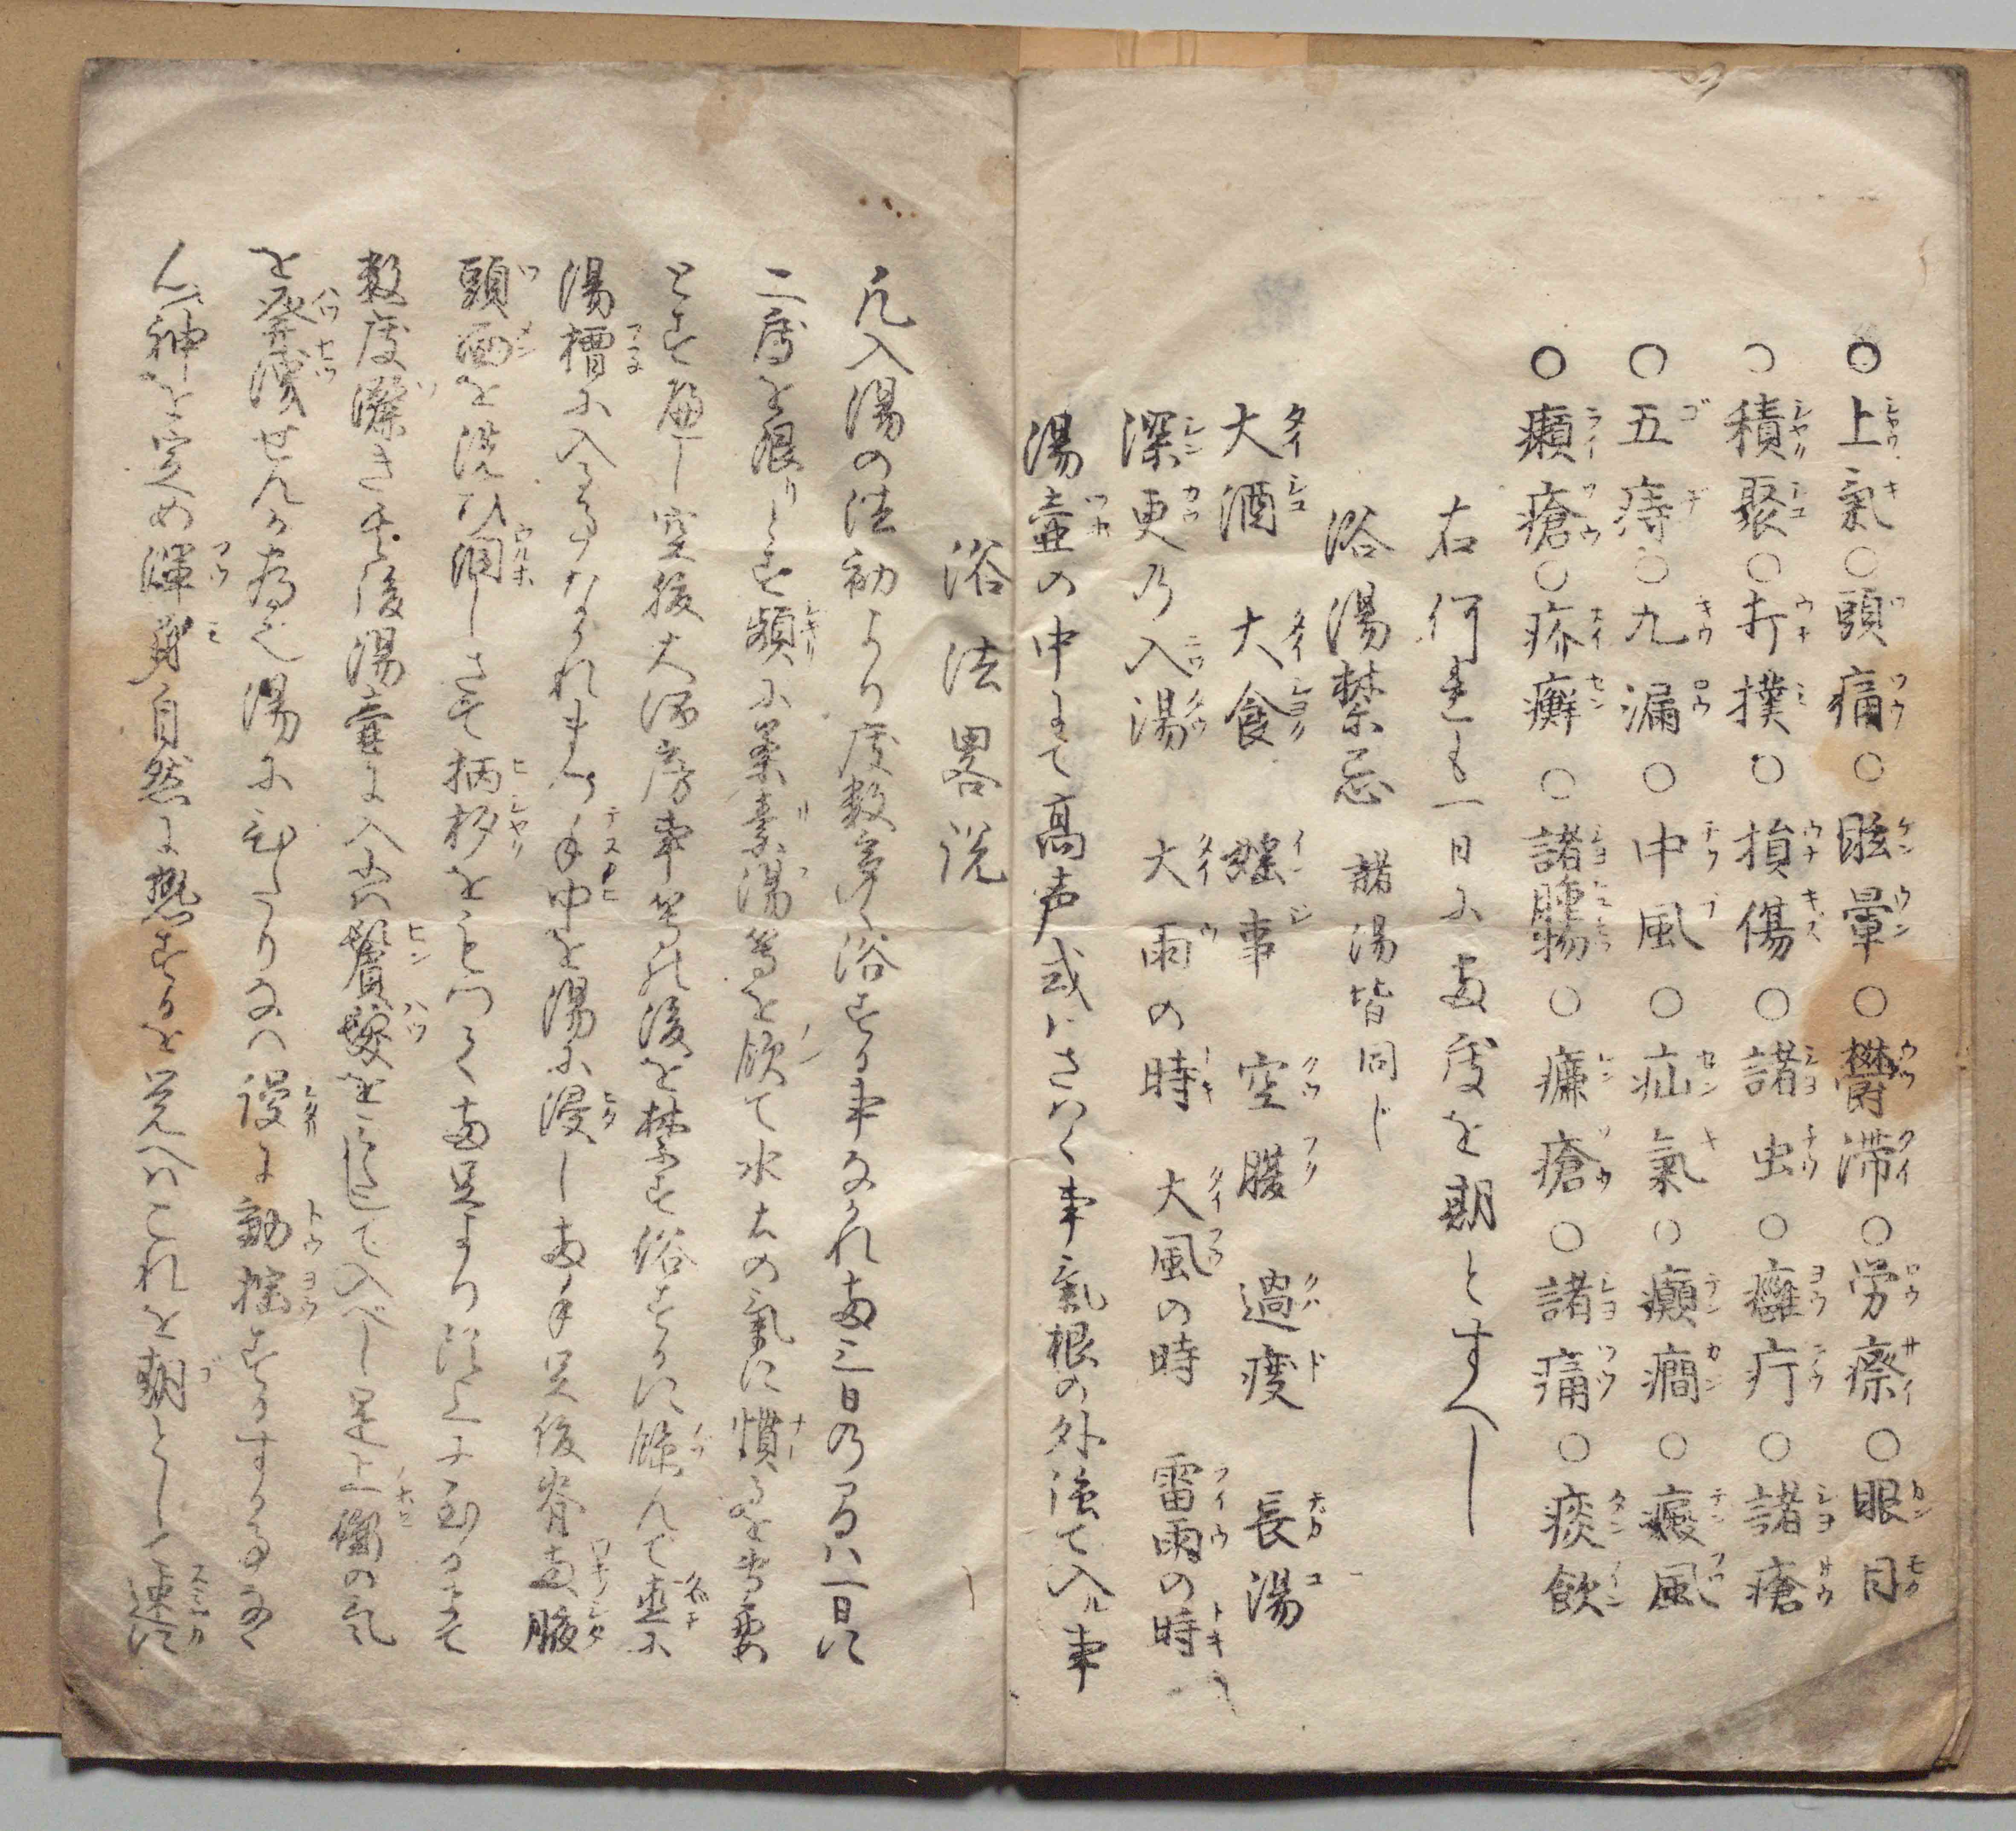 ○上氣○頭痛○眩暈○欝滞○労瘵○眼目
○積聚○打撲○損傷○諸虫○癰疔○諸瘡
○五痔○九漏○中風○疝氣○癲癇○癜風
○癩瘡○疥癬○諸腫物○臁瘡○諸痛○痰飲
右何れも一日に両度を期とすへし
浴湯禁忌 諸湯皆同じ
大酒 大食 婬事 空腹 過度 長湯
深更乃入湯 大雨の時 大風の時 雷雨の時
湯壷の中にて高声或はさわく事氣根の外強て入ル事
浴法畧説
凡入湯の法初より度数多く浴する事なかれ両三日の間は一日に
二度を限りとす頻に薬素湯等を飲て水土の氣に慣るを専要
とす扁し空腹大酒房事等の後を禁す浴するに臨んで直に
湯槽に入る事なかれまつ手中を湯に浸し両手足後脊両腋
頭面を洗ひ潤しさて柄杓をもつて両足より頂上に至るまて
数度灌き其後湯壷に入尤鬢髪を して入べし是上衝の気
を發洩せんか為也湯に ては謾に動揺する事なく
心神を定め渾身自然に熱するを覚へはこれを期として速に